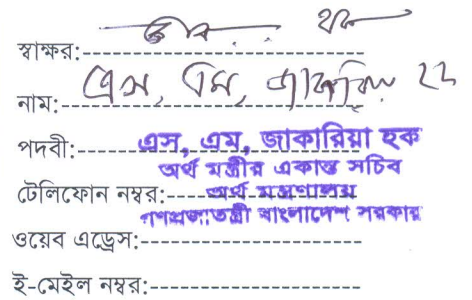 স্বাক্ষর:
নাম: এস, এম, জাকারিয়া হক
পদবী: এস, এম, জাকারিয়া হক
অর্থ মন্ত্রীর একান্ত সচিব
টেলিফোন নম্বর: অর্থ মন্ত্রণালয়
গণপ্রজাতন্ত্রী বাংলাদেশ সরকার
ওয়েব এড্রেস:
ই-মেইল নম্বর: